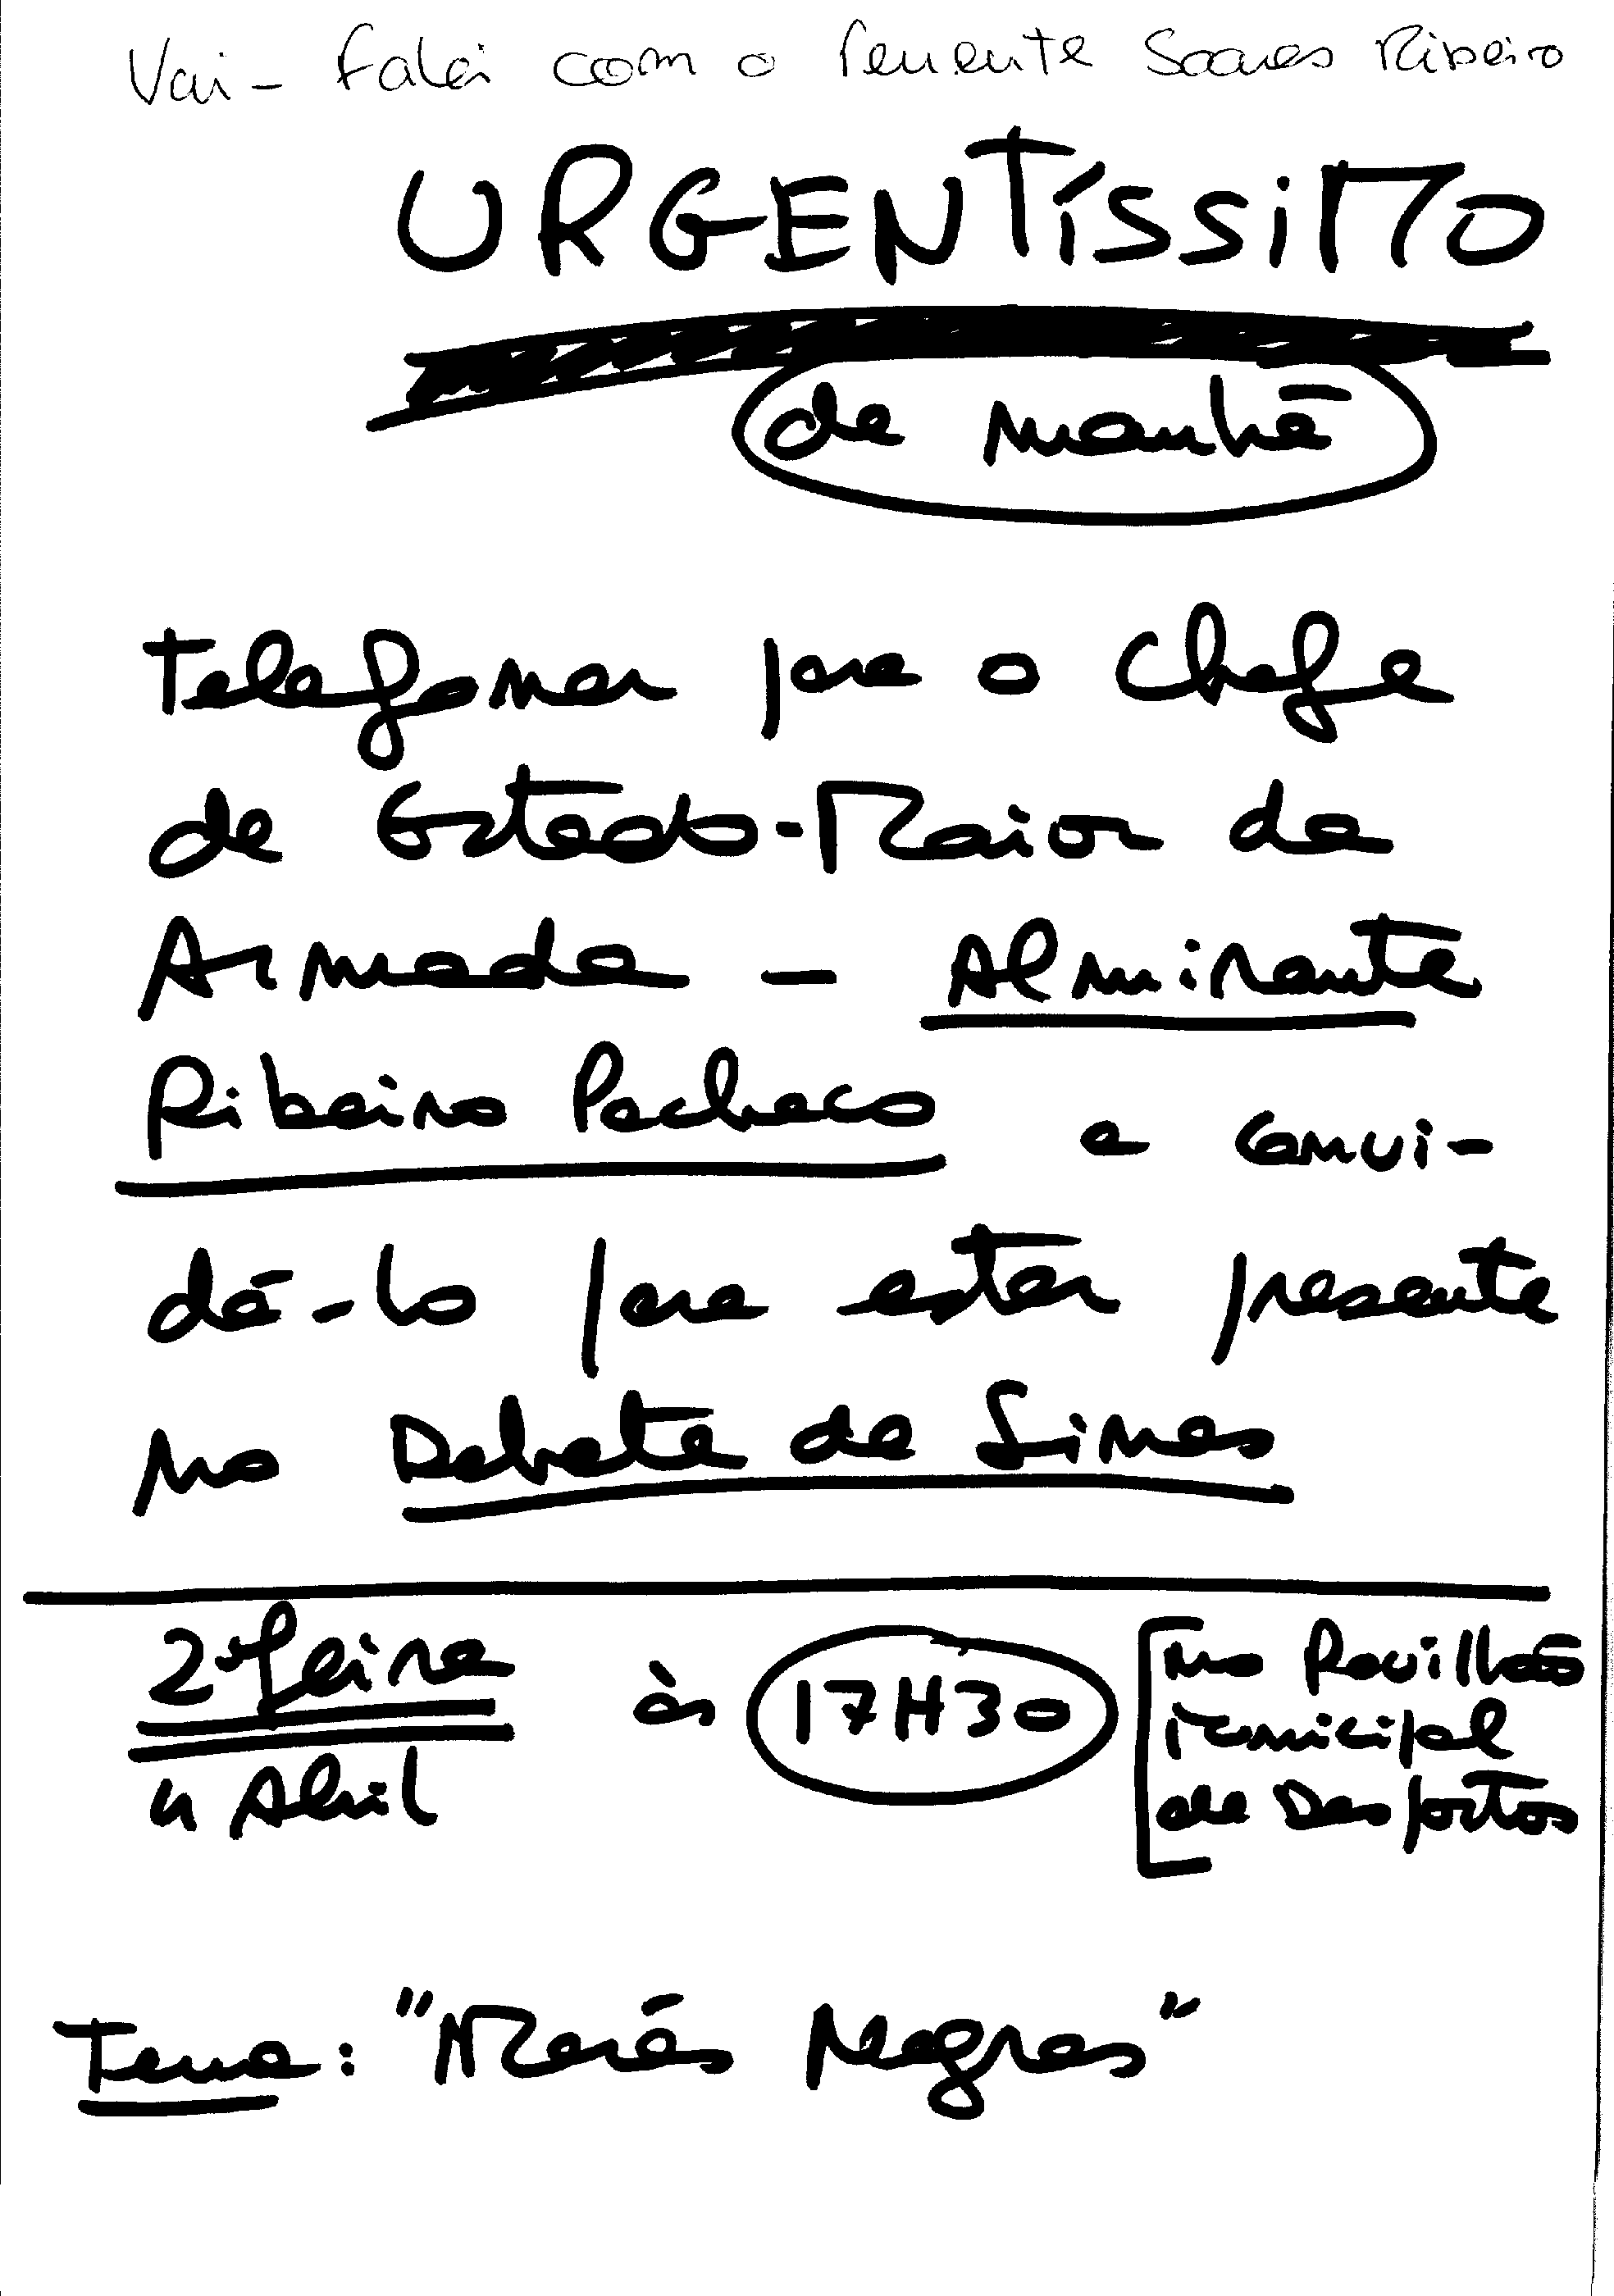 Vai - Falei com o Tenente Soares Ribeiro
URGENTÍSSIMO
de manhã
Telefonar para o Chefe
de Estado-Maior da
Armada - Almirante
Ribeiro Pacheco e convi-
dá-lo para estar presente
no Debate de Sines
2ª feira às 17H30 no Pavilhão
Municipal
4 Abril de Desportos
Tema: "Marés Negras"